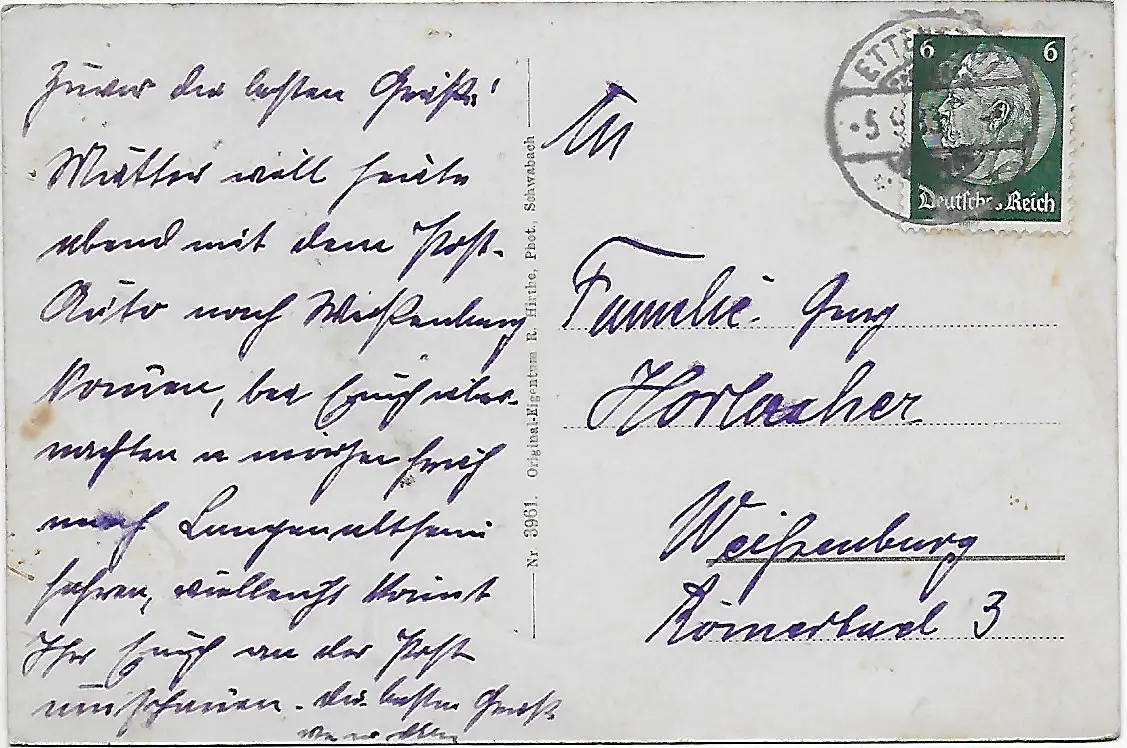 Zuvor die besten Grüße!
Mutter will heute
abend mit dem Post-
Auto nach Weißenburg
kommen, bei Euch über-
nachten u morgen früh
nach Langenaltheim
fahren, vielleicht könnt
Ihr Euch an der Post
umschauen. Die besten Grüße
Nr. 3961. Original-Eigentum R. Hirthe, Phot., Schwabach
An
Familie Georg
Horlacher
Weißenburg
Römerbad 3
6 6
Deutsches Reich
5